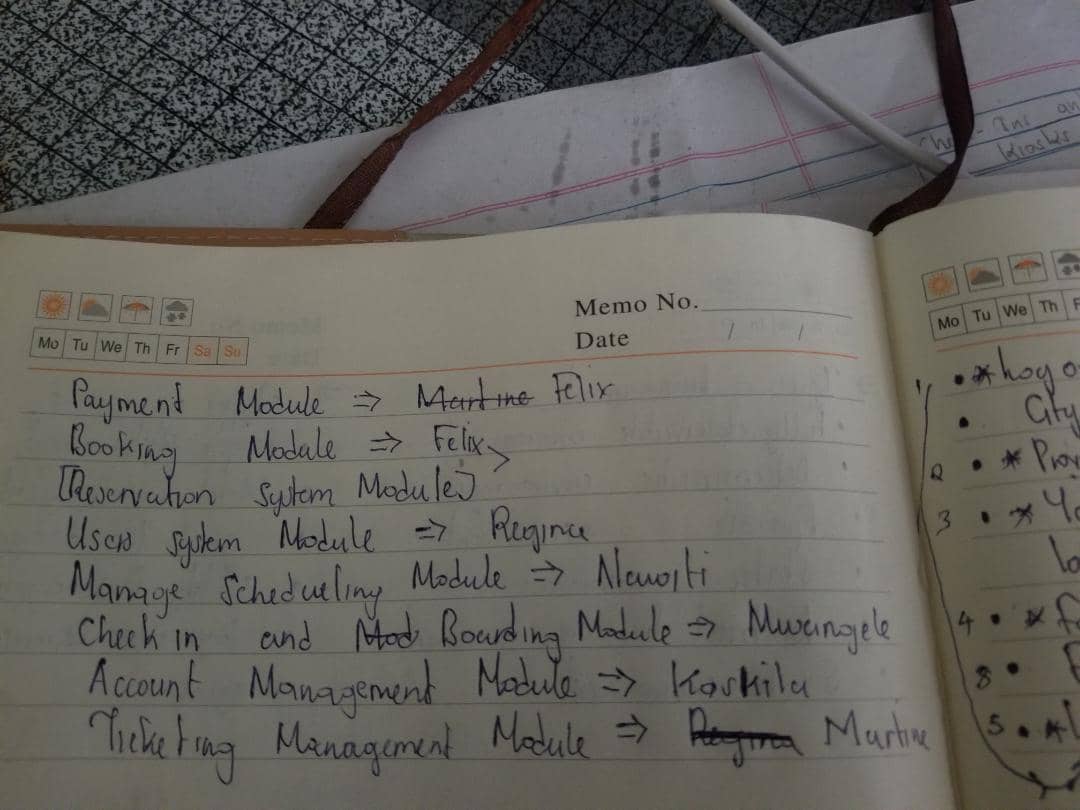 Che - Ins an
kiosks
Memo No.
Date / /
Mo Tu We Th Fr Sa Su
Payment Module => Martine Felix
Booking Module => Felix
[Reservation System Module]
Users System Module => Regina
Manage Scheduling Module =>
Check in and Mod Boarding Module => Mwangele
Account Management Module => Koskila
Ticketing Management Module => Regina Martine
Mo Tu We Th F
1 • * hog o
• City
2 • * Prov
3 • * Yo
lo
4 • *
8 •
5 • * L